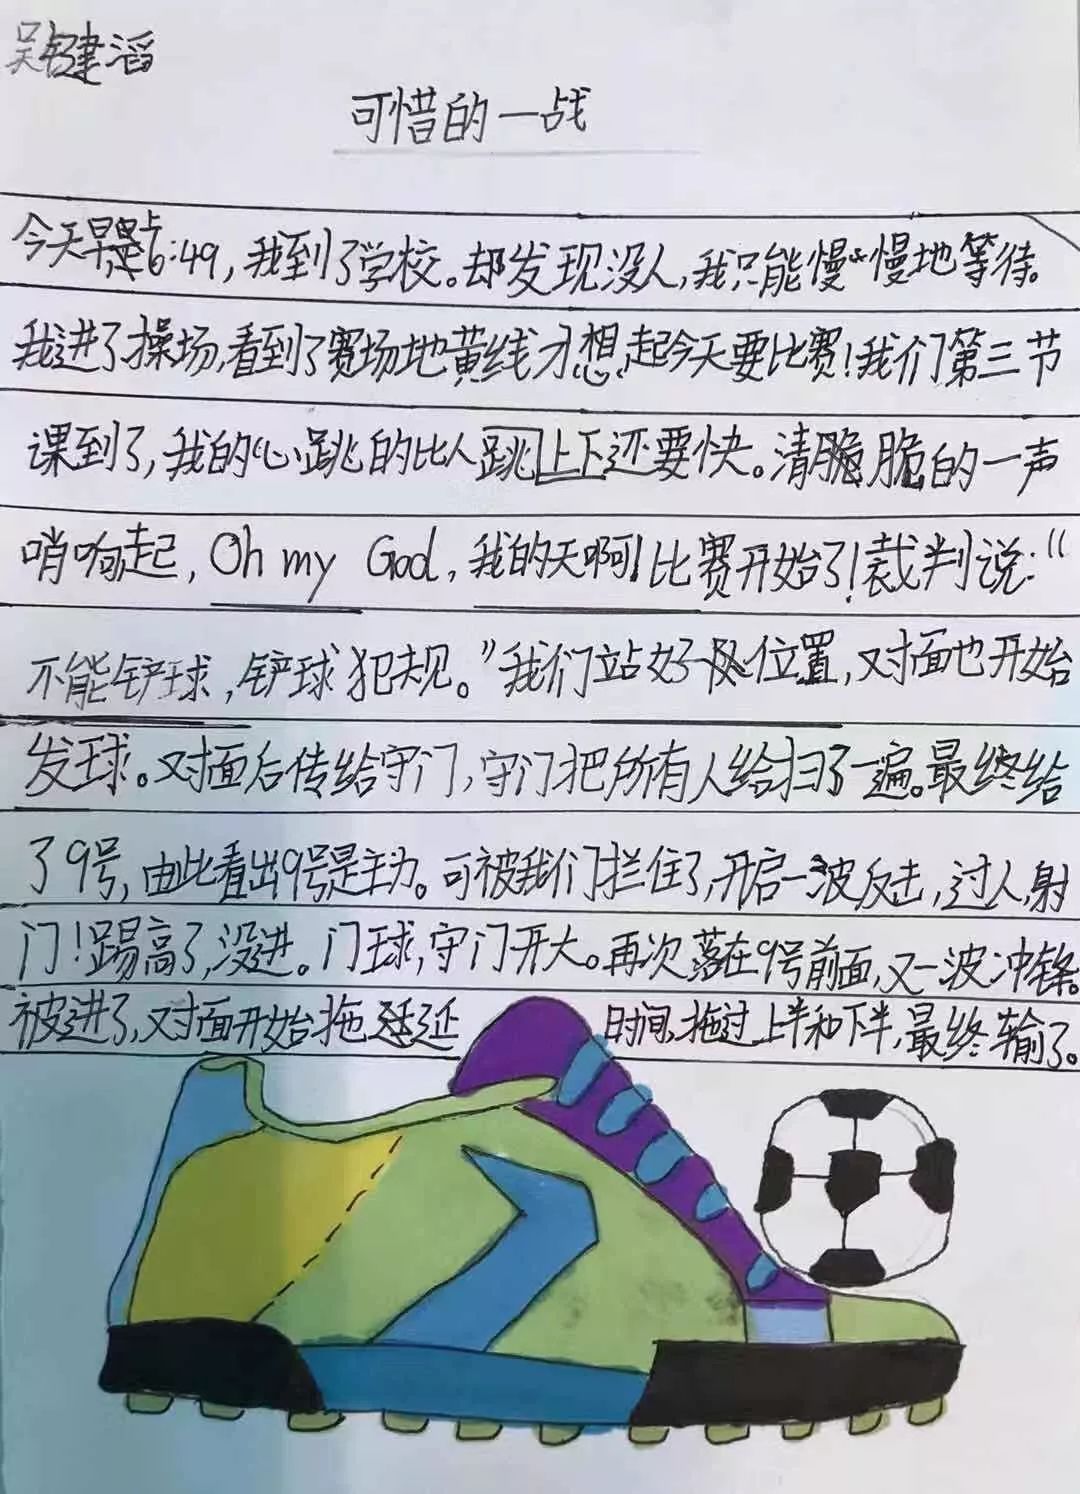 吴键滔
可惜的一战
今天早晨6:49,我到了学校。却发现没人,我只能慢慢地等待。
我进了操场,看到了赛场地黄线才想起今天要比赛!我们第三节
课到了,我的心跳的比人跳上下还要快。清脆脆的一声
哨响起,Oh my God,我的天啊!比赛开始了!裁判说:“
不能铲球,铲球犯规。”我们站好位置,对面也开始
发球。对面后传给守门,守门把所有人给扫了一遍。最终给
了9号,由此看出9号是主力。可被我们拦住了,开启一波反击,过人,射
门!踢高了,没进。门球,守门开大。再次落在9号前面,又一波冲锋。
被进了,对面开始拖延时间,拖过上半和下半,最终输了。